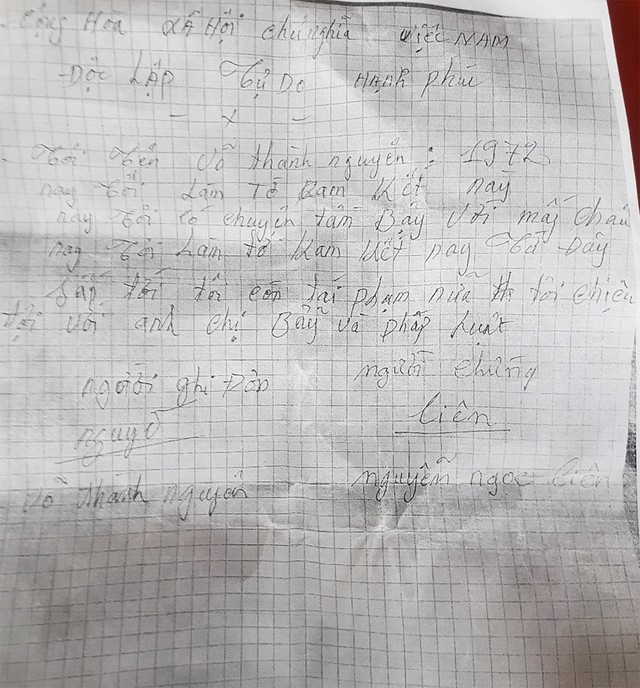 - Cộng Hòa Xã Hội chủ nghĩa Việt NAM
- Độc LẬP Tự Do HẠNH phúc
- x -
- Tôi Tên Võ thành nguyên : 1972
nay tôi Làm Tờ Kam Kết này
nay Tôi có chuyện tầm Bậy Với mấy cháu
nay Tôi Làm tờ Kam Kết nay Từ Đây
Sắp tới tôi còn tái phạm nữa thì tôi chiệu
tội với anh chị Bảy và pháp Luật
người ghi Đơn người chứng
nguyê liên
Võ thành nguyên nguyễn ngọc liên